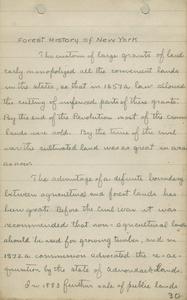 Forest History of New York
The custom of large grants of land
early monopolized all the convenient lands
in the state, so that in 1857 a law allowed
the selling of unfenced parts of these grants.
By the end of the Revolution most of the crown
lands were sold. By the time of the Civil
war the cultivated land was as great in area
as now.
The advantage of a definite boundary
between agricultural and forest lands has
been great. Before the Civil War it was
recommended that non-agricultural land
should be used for growing timber, and in
1872 a commission advocated the re-ac-
quisition by the state of Adirondack lands.
In 1883 further sale of public lands
30